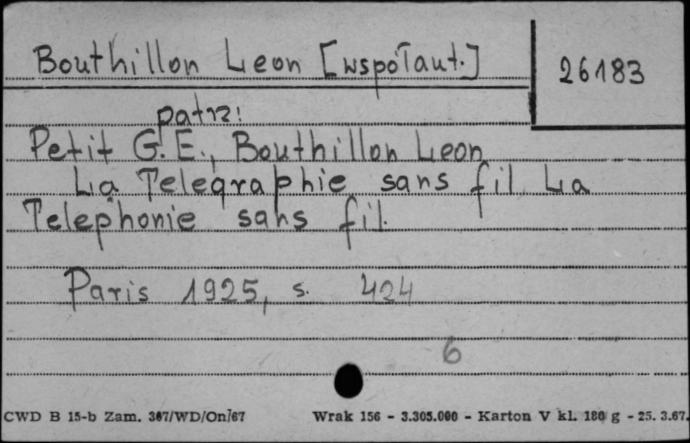 Bouthillon Leon [współaut.]
26183
patrz:
Petit G.E., Bouthillon Leon
La Telegraphie sans fil La
Telephonie sans fil.
Paris 1925, s. 424
6
CWD B 15-b Zam. 367/WD/On/67 Wrak 156 - 3.305.000 - Karton V kl. 180 g - 25. 3.67.